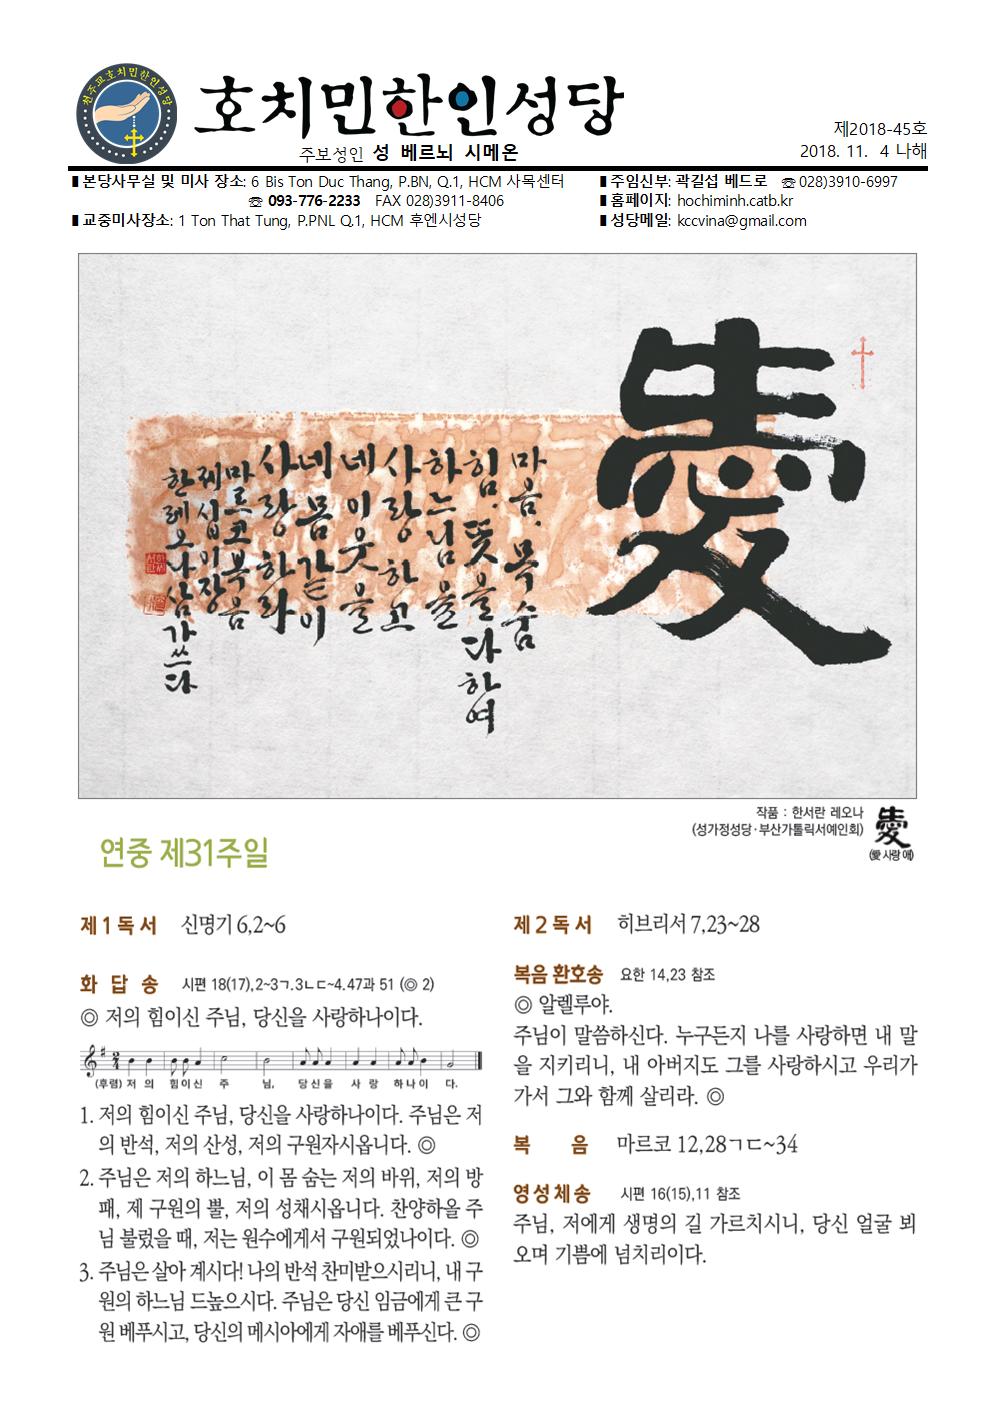 천주교호치민한인성당
호치민한인성당
주보성인 성 베르뇌 시메온
제2018-45호
2018. 11. 4 나해
▮본당사무실 및 미사 장소: 6 Bis Ton Duc Thang, P.BN, Q.1, HCM 사목센터
☏ 093-776-2233 FAX 028)3911-8406
▮교중미사장소: 1 Ton That Tung, P.PNL Q.1, HCM 후엔시성당
▮주임신부: 곽길섭 베드로 ☏028)3910-6997
▮홈페이지: hochiminh.catb.kr
▮성당메일: kccvina@gmail.com
愛
마음. 목숨
힘. 뜻을 다하여
하느님을
사랑하고
네 이웃을
네 몸같이
사랑하라
마르코복음
제십이장
한레오나 삼가 쓰다
작품 : 한서란 레오나
(성가정성당·부산가톨릭서예인회)
愛
(愛 사랑 애)
연중 제31주일
제1독서 신명기 6,2~6
화 답 송 시편 18(17),2~3ㄱ.3ㄴㄷ~4.47과 51 (◎ 2)
◎ 저의 힘이신 주님, 당신을 사랑하나이다.
(후렴) 저 의 힘이신 주 님, 당신을 사 랑 하나이 다.
1. 저의 힘이신 주님, 당신을 사랑하나이다. 주님은 저
의 반석, 저의 산성, 저의 구원자시옵니다. ◎
2. 주님은 저의 하느님, 이 몸 숨는 저의 바위, 저의 방
패, 제 구원의 뿔, 저의 성채시옵니다. 찬양하올 주
님 불렀을 때, 저는 원수에게서 구원되었나이다. ◎
3. 주님은 살아 계시다! 나의 반석 찬미받으시리니, 내 구
원의 하느님 드높으시다. 주님은 당신 임금에게 큰 구
원 베푸시고, 당신의 메시아에게 자애를 베푸신다. ◎
제2독서 히브리서 7,23~28
복음 환호송 요한 14,23 참조
◎ 알렐루야.
주님이 말씀하신다. 누구든지 나를 사랑하면 내 말
을 지키리니, 내 아버지도 그를 사랑하시고 우리가
가서 그와 함께 살리라. ◎
복 음 마르코 12,28ㄱㄷ~34
영성체송 시편 16(15),11 참조
주님, 저에게 생명의 길 가르치시니, 당신 얼굴 뵈
오며 기쁨에 넘치리이다.